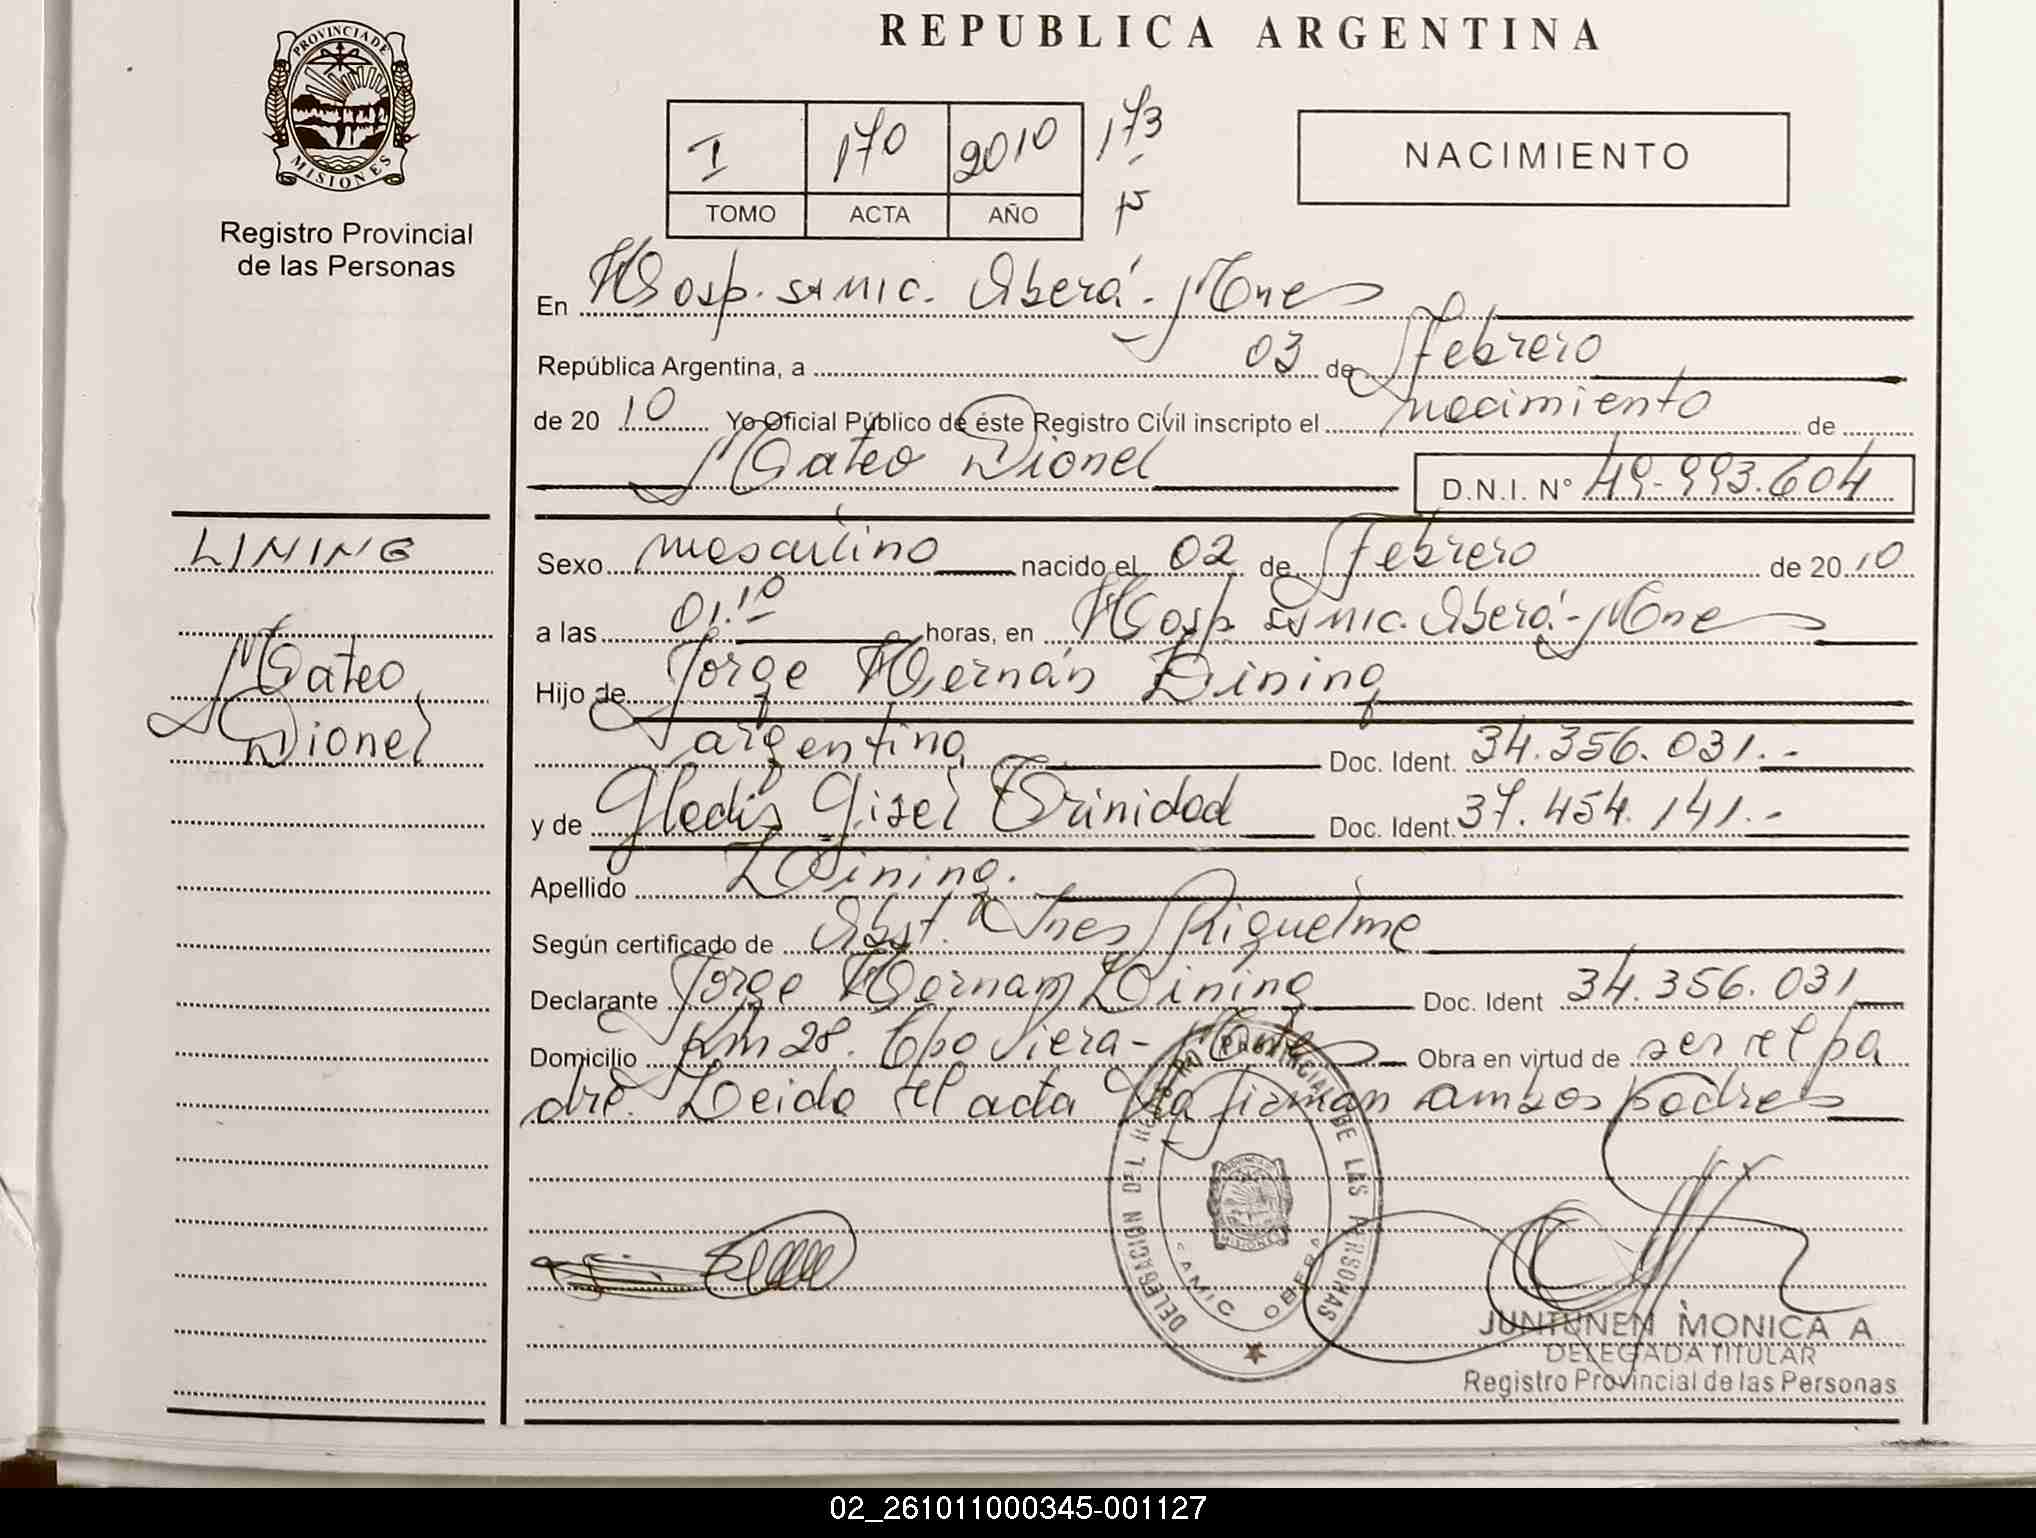 REPUBLICA ARGENTINA
PROVINCIA DE
MISIONES
Registro Provincial
de las Personas
I 170 2010 173
TOMO ACTA AÑO
NACIMIENTO
En Hosp. SAMIC. Oberá - Mnes
República Argentina, a 03 de Febrero
de 2010 Yo Oficial Público de éste Registro Civil inscripto el nacimiento de
Mateo Lionel D.N.I. N° 49.993.604
LINING
Mateo
Lionel
Sexo masculino nacido el 02 de Febrero de 2010
a las 01.10 horas, en Hosp. SAMIC. Oberá - Mnes
Hijo de Jorge Hernán Lining
argentino Doc. Ident. 34.356.031.-
y de Gladis Gisel Trinidad Doc. Ident. 37.454.141.-
Apellido Lining.
Según certificado de Obst. Ines Riquelme
Declarante Jorge Hernan Lining Doc. Ident 34.356.031
Domicilio Km 28. Cpo Viera - Mnes Obra en virtud de ser el pa
dre. Leida el acta la firman ambos padres
DELEGACION DEL REGISTRO PROVINCIAL DE LAS PERSONAS
SAMIC OBERA
MISIONES
JUNTUNEN MONICA A
DELEGADA TITULAR
Registro Provincial de las Personas
02_261011000345-001127